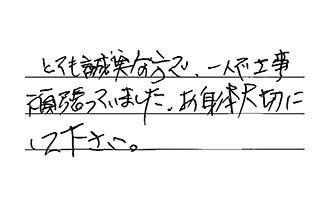 とても誠実な方で、一人で工事
頑張っていました。お身体大切に
して下さい。